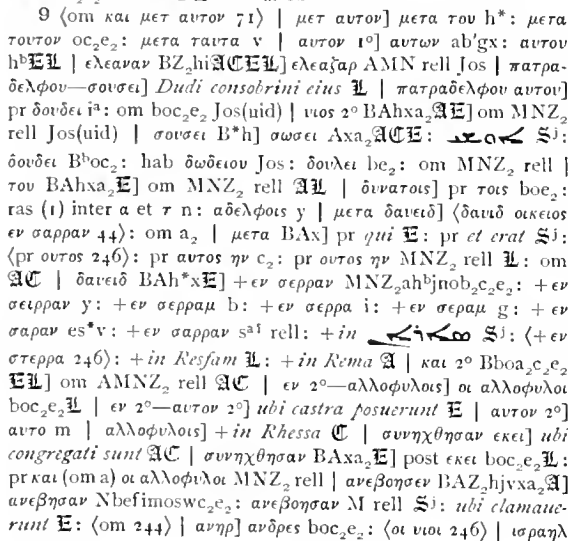 9 ⟨om και μετ αυτον 71⟩ | μετ αυτον] μετα του h*: μετα
τουτον oc₂e₂: μετα ταυτα v | αυτον 1º] αυτων ab'gx: αυτου
hᵇ𝕰𝕷 | ελεαναν BZ₂hi𝕬𝕮𝕰𝕷] ελεαζαρ AMN rell Jos | πατρα-
δελφου—σουσει] Dudi consobrini eius 𝕷 | πατραδελφου αυτου]
pr δουδει iᵃ: om boc₂e₂ Jos(uid) | υιος 2º BAhxa₂𝕬𝕰] om MNZ₂
rell Jos(uid) | σουσει B*h] σωσει Axa₂𝕬𝕮𝕰: Sʲ:
δουδει Bᵇoc₂: hab δωδειου Jos: δουλει be₂: om MNZ₂ rell |
του BAhxa₂𝕰] om MNZ₂ rell 𝕬𝕷 | δυνατοις] pr τοις boe₂:
ras (1) inter α et τ n: αδελφοις y | μετα δαυειδ] ⟨δαυιδ οικειος
εν σαρραν 44⟩: om a₂ | μετα BAx] pr qui 𝕰: pr et erat Sʲ:
⟨pr ουτος 246⟩: pr αυτος ην c₂: pr ουτος ην MNZ₂ rell 𝕷: om
𝕬𝕮 | δαυειδ BAh*x𝕰] +εν σερραν MNZ₂ahᵇjnob₂c₂e₂: +εν
σειρραν y: +εν σερραμ b: +εν σερρα i: +εν σεραμ g: +εν
σαραν es*v: +εν σαρραν sᵃ¹ rell: +in Sʲ: ⟨+εν
στερρα 246⟩: +in Resfam 𝕷: +in Rema 𝕬 | και 2º Bboa₂c₂e₂
𝕰𝕷] om AMNZ₂ rell 𝕬𝕮 | εν 2º—αλλοφυλοις] οι αλλοφυλοι
boc₂e₂𝕷 | εν 2º—αυτον 2º] ubi castra posuerunt 𝕰 | αυτον 2º]
αυτο m | αλλοφυλοις] +in Rhessa 𝕮 | συνηχθησαν εκει] ubi
congregati sunt 𝕬𝕮 | συνηχθησαν BAxa₂𝕰] post εκει boc₂e₂𝕷:
pr και (om a) οι αλλοφυλοι MNZ₂ rell | ανεβοησεν BAZ₂hjvxa₂𝕬]
ανεβησαν Nbefimoswc₂e₂: ανεβοησαν M rell Sʲ: ubi clamaue-
runt 𝕰: ⟨om 244⟩ | ανηρ] ανδρες boc₂e₂: ⟨οι υιοι 246⟩ | ισραηλ